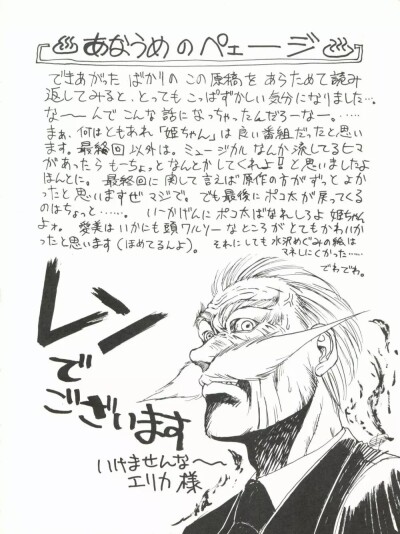 あなうめのペェージ
できあがった ばかりの この原稿を あらためて読み
返してみると、とっても こっぱずかしい気分になりました…。
な〜〜んで こんな 話になっちゃったんだろーなー。……
まぁ、何はともあれ「姫ちゃん」は良い番組だったと思い
ます。最終回以外は。ミュージカルなんか流してるヒマ
があったら もーちょっとなんとかしてくれよ!!と思いましたよ
ほんとに。 最終回に関して言えば原作の方がずっとよか
ったと思いますぜマジで。でも最後にポコ太が戻ってくる
のはちょっと……。 いーかげんにポコ太ばなれしろよ 姫ちゃん
よォ。 愛美はいかにも頭ワルソーなところがとてもかわいか
ったと思います(ほめてるんよ)。 それにしても水沢めぐみの絵は
マネしにくかった……
でわでわ。
レン
で
ございます
いけませんな〜〜
エリカ 様